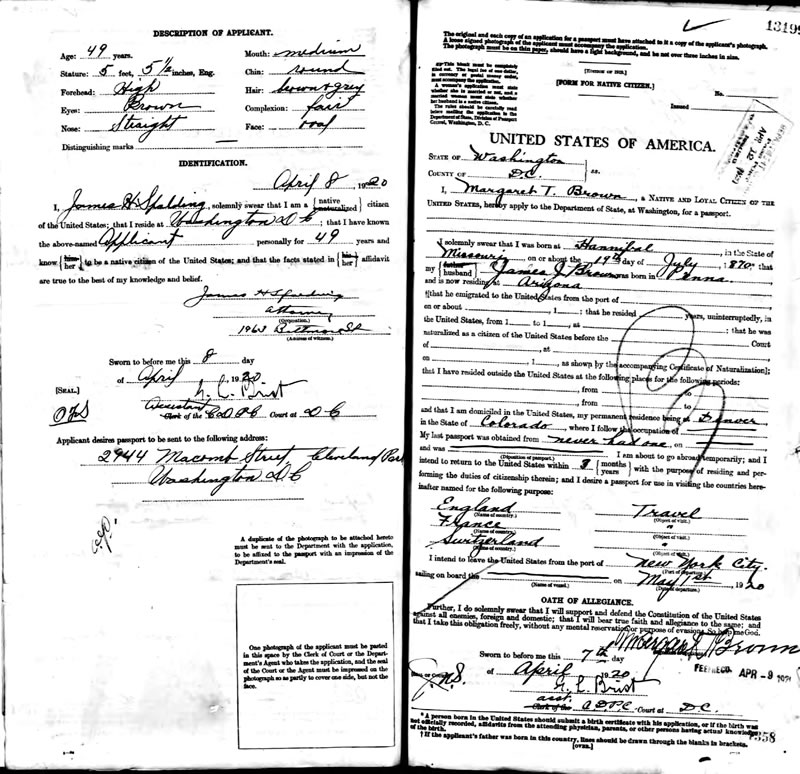 DESCRIPTION OF APPLICANT.
Age: 49 years.
Mouth: medium
Stature: 5 feet, 5 1/2 inches, Eng.
Chin: round
Forehead: High
Hair: brown & grey
Eyes: Brown
Complexion: fair
Nose: Straight
Face: oval
Distinguishing marks
IDENTIFICATION.
April 8, 1920
I, James H Spalding, solemnly swear that I am a {native naturalized} citizen
of the United States; that I reside at Washington D C; that I have known
the above-named Applicant personally for 49 years and
know {him her} to be a native citizen of the United States; and that the facts stated in {his her} affidavit
are true to the best of my knowledge and belief.
James H Spalding
attorney
(Occupation.)
1963
(Address of witness.)
Sworn to before me this 8 day
of April, 1920
[SEAL.]
G. C. Brist
Assistant
Clerk of the C D P C Court at D C
Applicant desires passport to be sent to the following address:
2944 Macomb Street, Cleveland Park
Washington D C
A duplicate of the photograph to be attached hereto
must be sent to the Department with the application,
to be affixed to the passport with an impression of the
Department's seal.
One photograph of the applicant must be pasted
in this space by the Clerk of Court or the Depart-
ment's Agent who takes the application, and the seal
of the Court or Agent must be impressed on the
photograph so as partly to cover one side, but not the
face.
13199
The original and each copy of an application for a passport must have attached to it a copy of the applicant's photograph.
A loose signed photograph of the applicant must accompany the application.
The photograph must be on thin paper, should have a light background, and be not over three inches in size.
This blank must be completely
filled out. The legal fee of one dollar,
in currency or postal money order,
must accompany the application.
A woman's application must state
whether she is married or not, and a
married woman must state whether
her husband is a native citizen.
The rules should be carefully read
before mailing the application to the
Department of State, Division of Passport
Control, Washington, D. C.
[FORM FOR NATIVE CITIZEN.]
No.
Issued
UNITED STATES OF AMERICA.
STATE OF Washington
COUNTY OF D.C. ss.
I, Margaret T. Brown, a NATIVE AND LOYAL CITIZEN OF THE
UNITED STATES, hereby apply to the Department of State, at Washington, for a passport.
I solemnly swear that I was born at Hannibal, in the State of
Missouri, on or about the 19th day of July, 1870; that
my {father husband} James J Brown was born in Penna
and is now residing at Arizona
†that he emigrated to the United States from the port of
on or about, 1; that he resided years, uninterruptedly, in
the United States, from 1 to 1, at; that he was
naturalized as a citizen of the United States before the Court
of, at,
on, 1, as shown by the accompanying Certificate of Naturalization];
that I have resided outside the United States at the following places for the following periods:
, from to
, from to
and that I am domiciled in the United States, my permanent residence being at Denver
in the State of Colorado, where I follow the occupation of
My last passport was obtained from never had one, on
and was (Disposition of passport.) I am about to go abroad temporarily; and I
intend to return to the United States within 3 {months years} with the purpose of residing and per-
forming the duties of citizenship therein; and I desire a passport for use in visiting the countries here-
inafter named for the following purpose:
England Travel
(Name of country.) (Object of visit.)
France "
(Name of country.) (Object of visit.)
Switzerland "
(Name of country.) (Object of visit.)
I intend to leave the United States from the port of New York City
(Port of departure.)
sailing on board the on May 1st, 1920
(Name of vessel.) (Date of departure.)
OATH OF ALLEGIANCE.
Further, I do solemnly swear that I will support and defend the Constitution of the United States
against all enemies, foreign and domestic; that I will bear true faith and allegiance to the same; and
that I take this obligation freely, without any mental reservation or purpose of evasion: So help me God.
Margaret T Brown
Sworn to before me this 7th day
FEE REC'D APR - 9 1920
of April, 1920
G. C. Brist
asst.
Clerk of the C D P C Court at D.C.
* A person born in the United States should submit a birth certificate with his application, or if the birth was
not officially recorded, affidavits from the attending physician, parents, or other persons having actual knowledge
of the birth.
† If the applicant's father was born in this country, lines should be drawn through the blanks in brackets.
[OVER.]